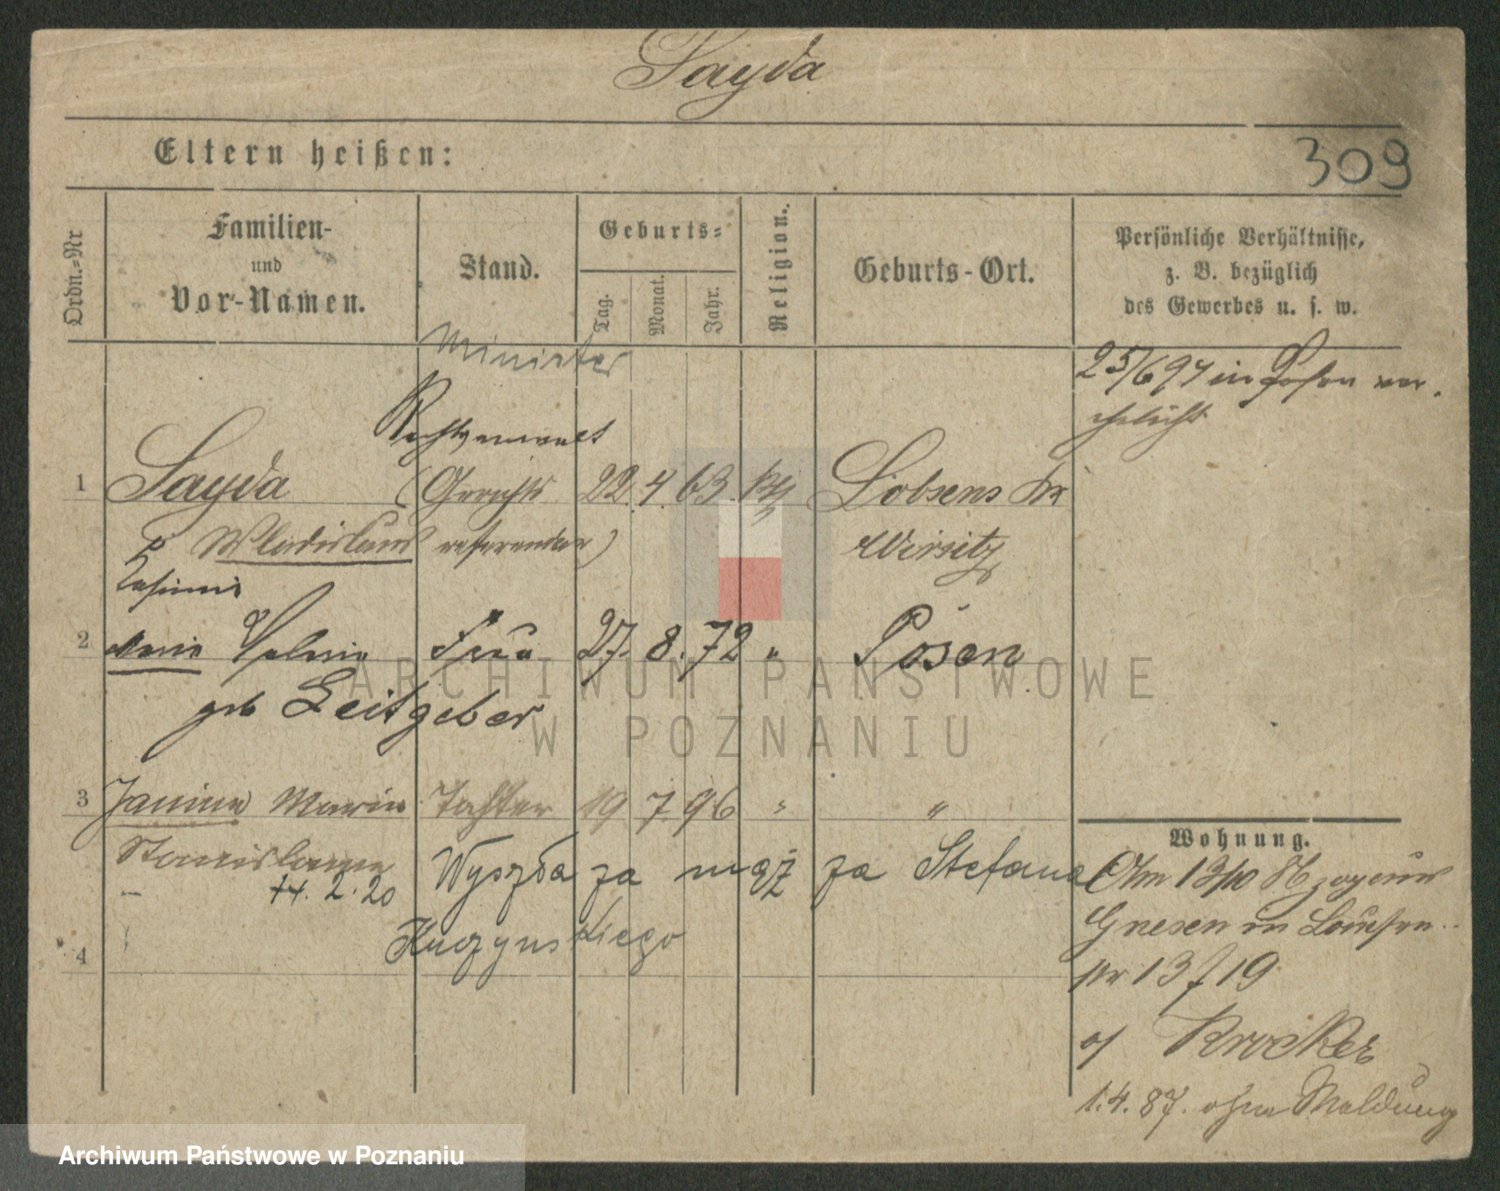 Sayda
Eltern heißen:
309
Ordn.-Nr
Familien-
und
Vor-Namen.
Stand.
Geburts-
Tag.
Monat.
Jahr.
Religion.
Geburts-Ort.
Persönliche Verhältnisse,
z. B. bezüglich
des Gewerbes u. s. w.
Minister
25/6 94 in Posen ver-
ehelicht
Rechtsanwalt
1 Sayda (Gerichts 22 4 63 kth Lobsens Kr
Wladislaus referendar) Wirsitz
Kasimir
2 Frau 27. 8. 72 " Posen
geb Leitgeber
3 Janina Maria Tochter 19 7 96 " "
Wohnung.
Stanislawa
Wyszła za mąż za Stefana
14. 2. 20
Kuczynskiego
Gnesen
4
Nr 13 f 19
1.4.87. ohne Meldung
ARCHIWUM PAŃSTWOWE
W POZNANIU
Archiwum Państwowe w Poznaniu